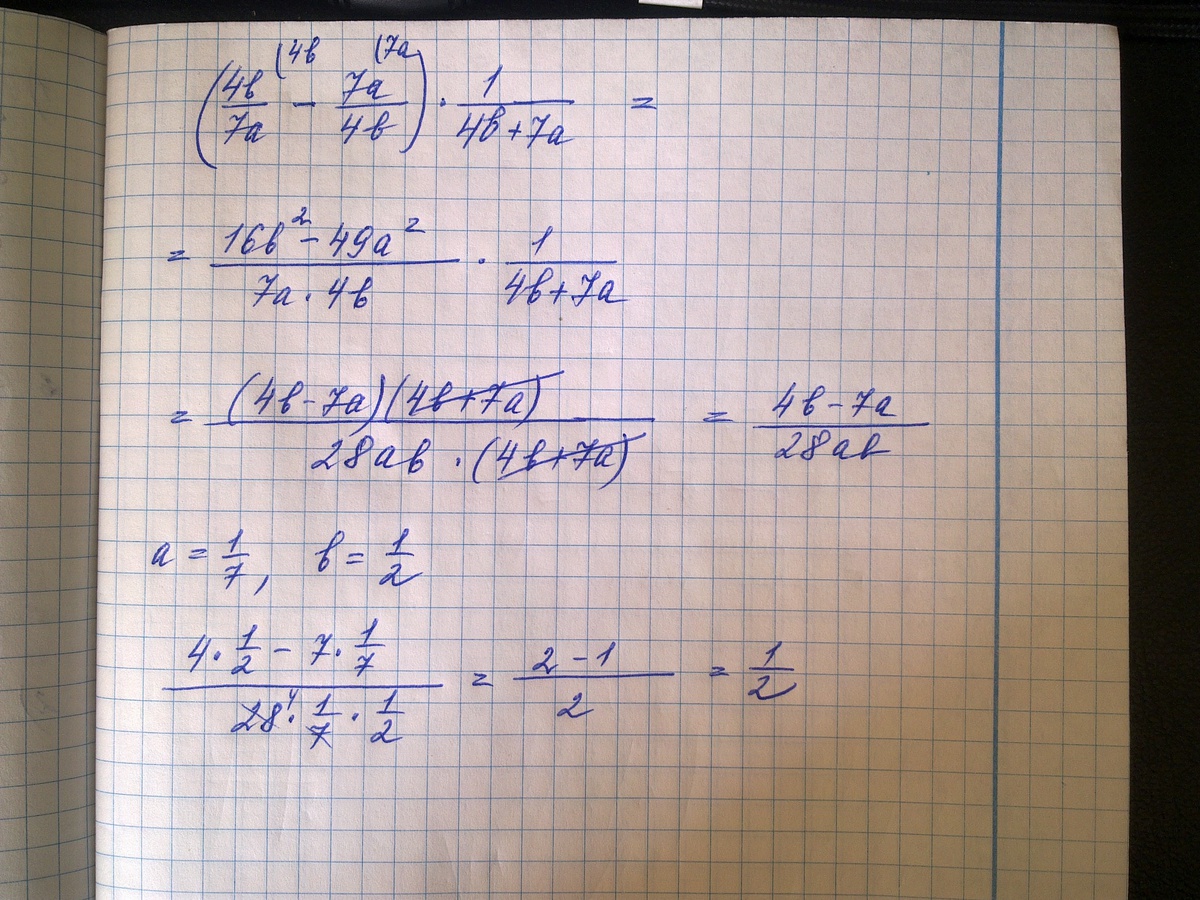 (4b/7a (4b - 7a/4b (7a) · 1/(4b+7a) =
= (16b² - 49a²)/(7a · 4b) · 1/(4b+7a)
= (4b-7a)(4b+7a)/(28ab · (4b+7a)) = (4b-7a)/(28ab)
a = 1/7, b = 1/2
(4 · 1/2 - 7 · 1/7)/(28⁴ · 1/7 · 1/2) = (2-1)/2 = 1/2